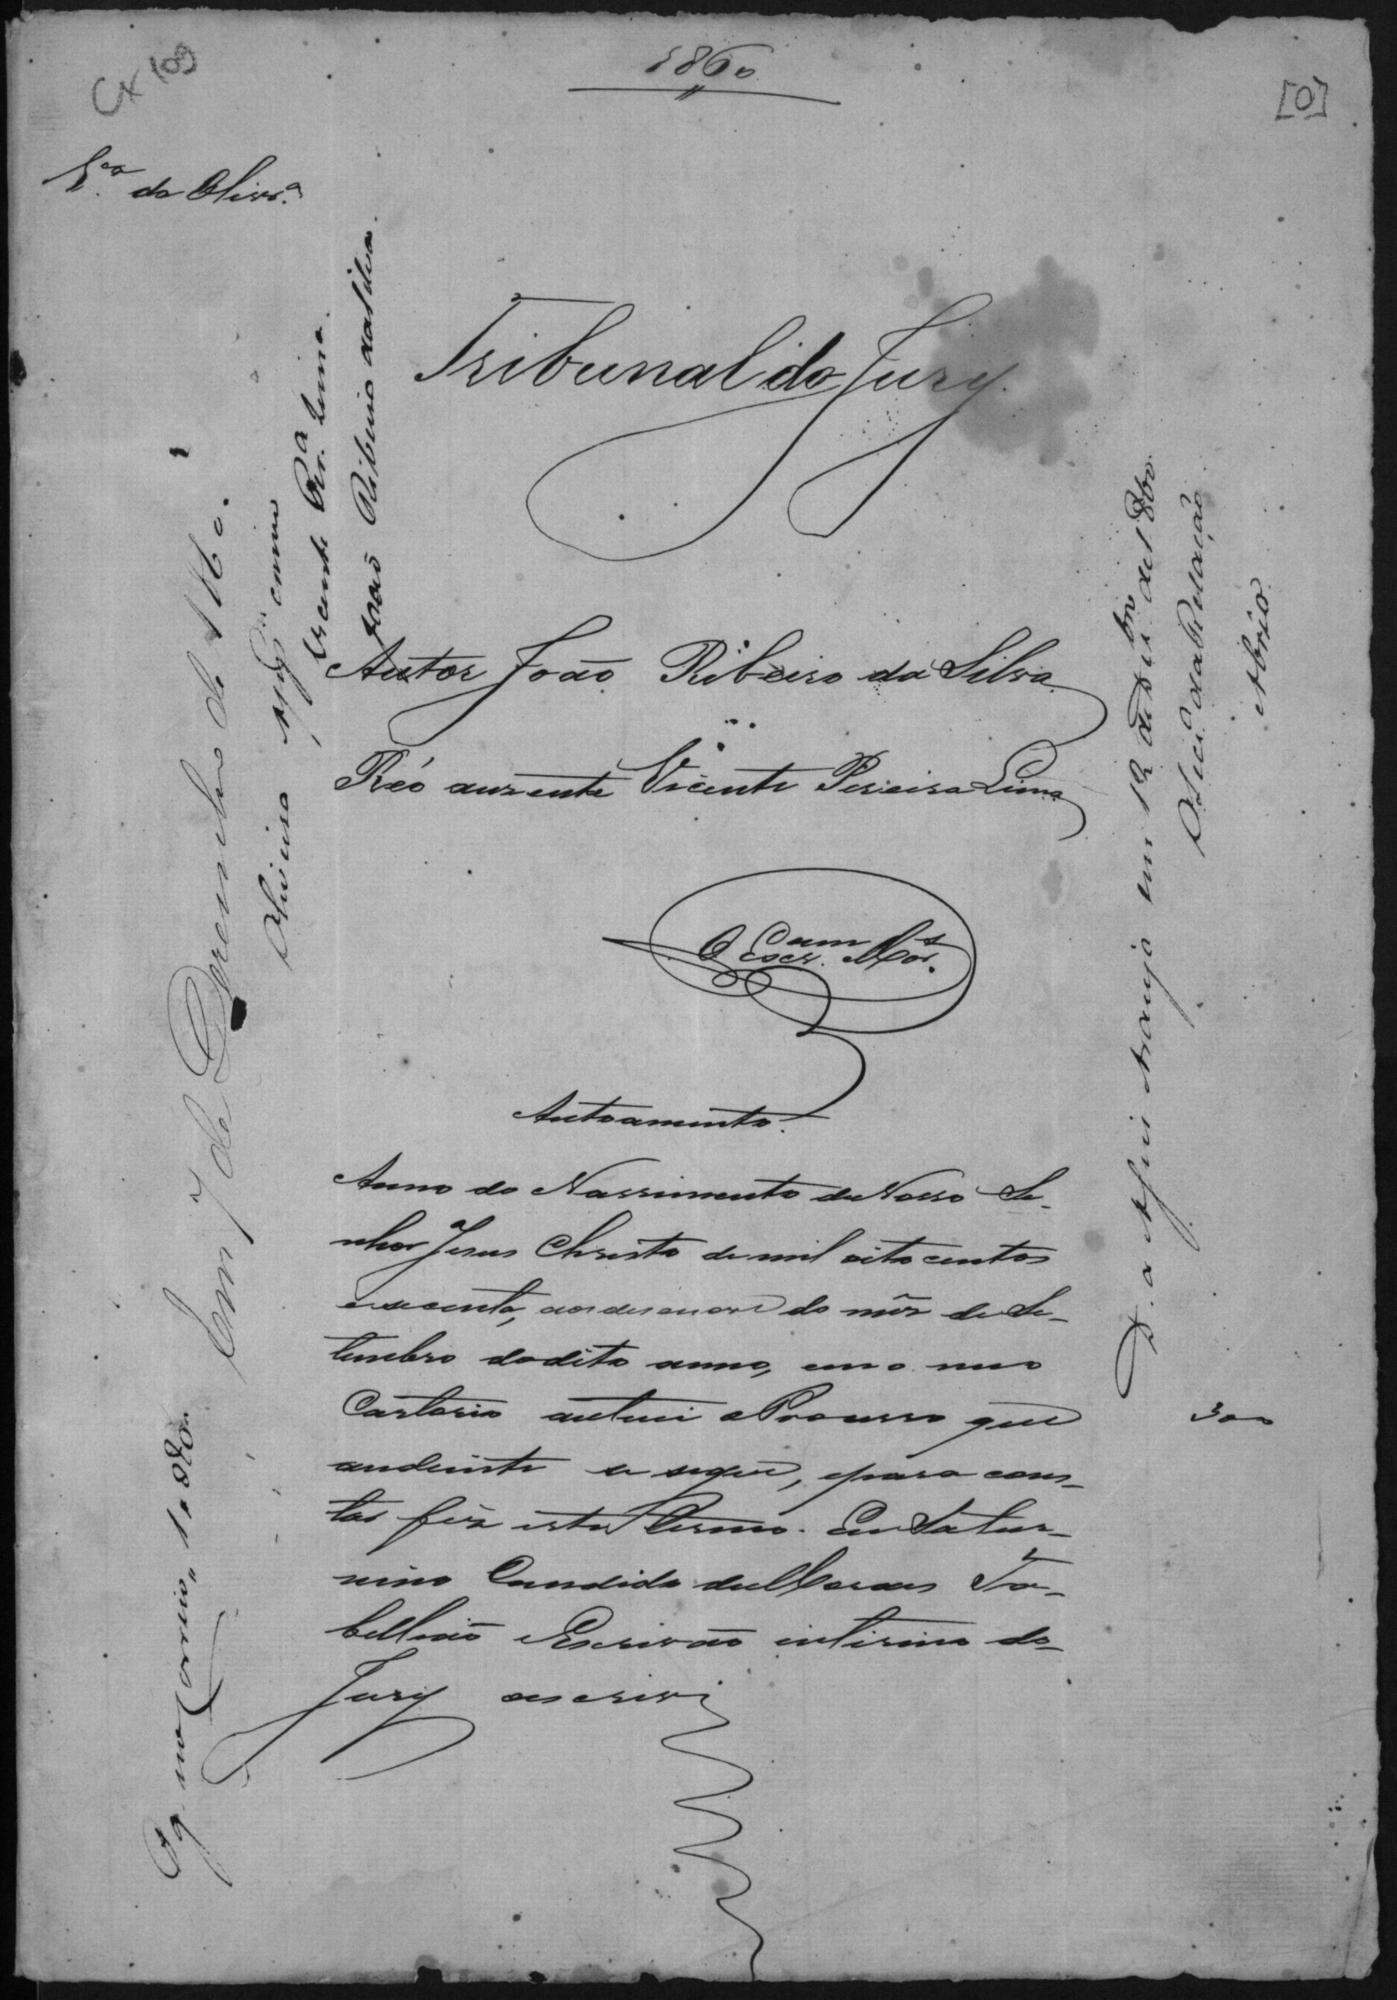 1860
Cx 109
[0]
da Olivr.ª
Tribunal do Jury
Autor João Ribeiro da Silva
Réo auzente Vicente Pereira Lima
O Escr.am Mor.s
Autoamento.
Anno do Nassimento de Nosso Se-
nhor Jesus Christo de mil oito centos
e secenta, aos desenove do mês de Se-
tembro do dito anno, em o meu
Cartorio autuei o Processo que
andiente se segue, e para cons-
tar fiz este termo. Eu Satur-
nino Candido de Moraes Ta-
bellião e Escrivão interino do
Jury o escrevi
Pg no Correio, 1.880.
Em 7 de Dezembro de 1860.
Oliveira
Vicente Per.ª Lima.
João Ribeiro da Silva.
D. a Araujo em 12 de Dezbro de 1860
O Secr.o da Relação
300